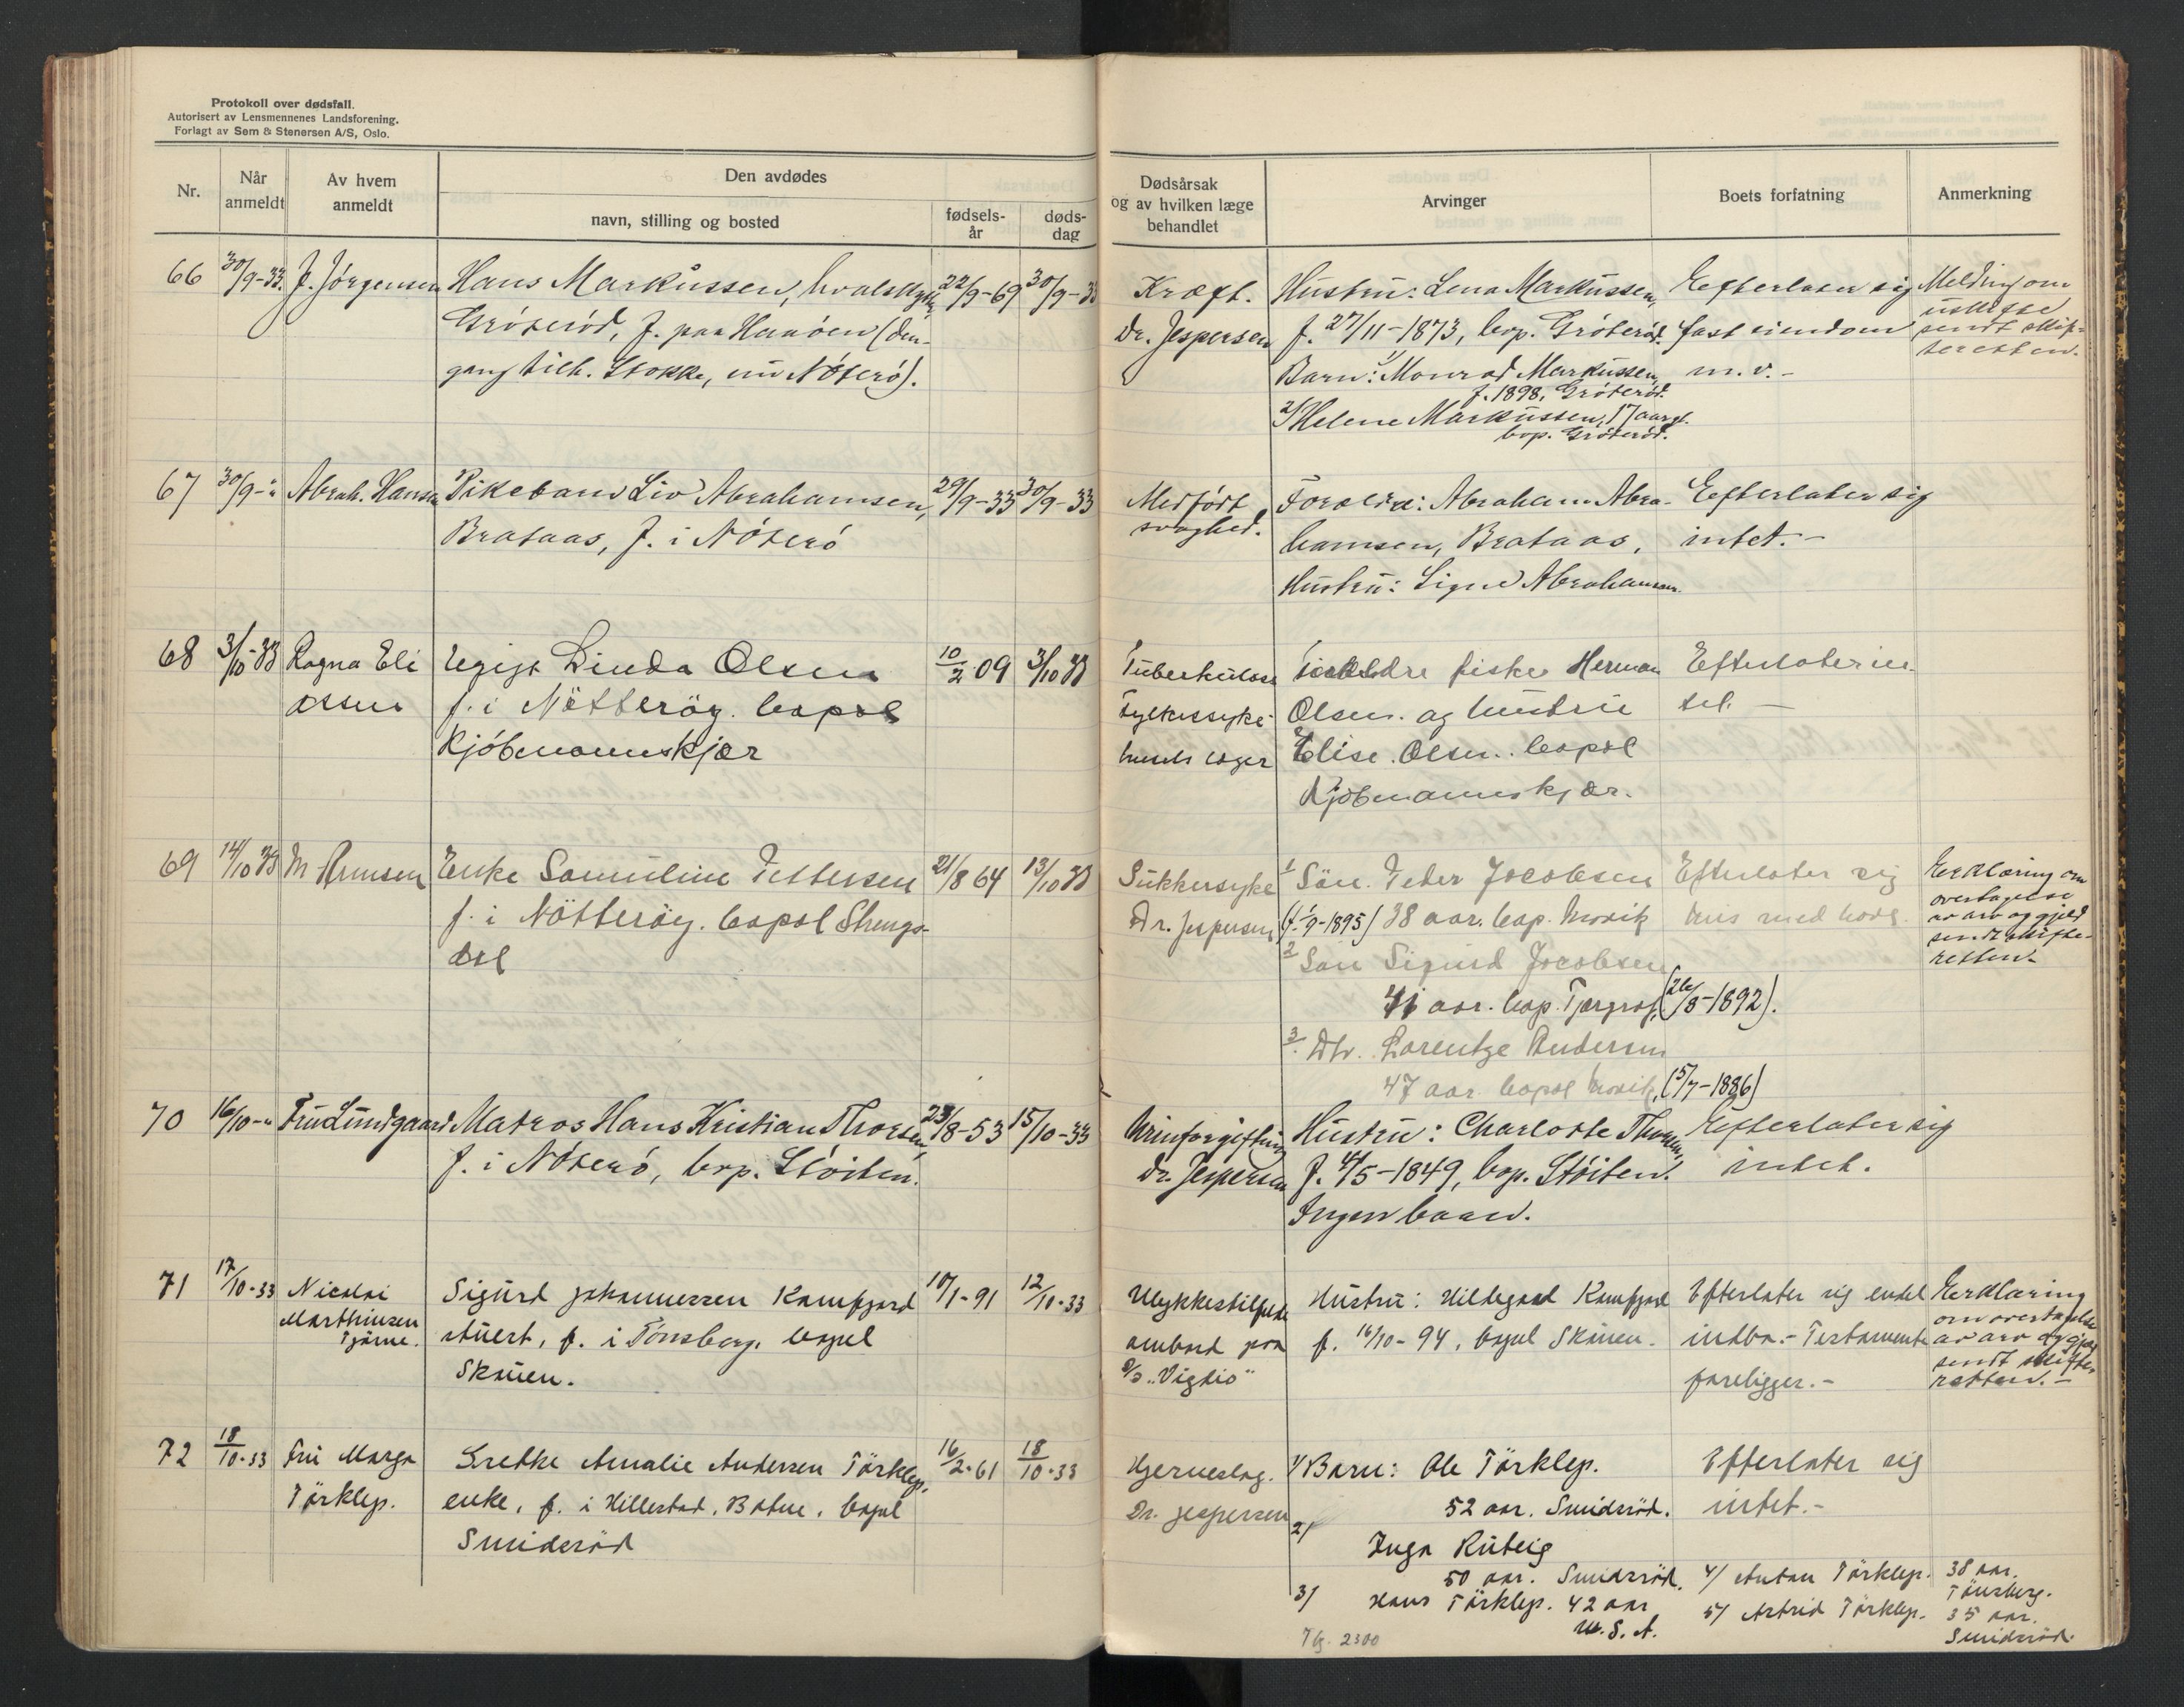 Protokoll over dødsfall.
Autorisert av Lensmennenes Landsforening.
Forlagt av Sem & Stenersen A/S, Oslo.
Nr.
Når anmeldt
Av hvem anmeldt
Den avdødes
navn, stilling og bosted
fødsels-år
døds-dag
Dødsårsak og av hvilken læge behandlet
Arvinger
Boets forfatning
Anmerkning
66 30/9-33. J. Jörgensen Hans Markussen, hvalskytter 22/9-69 30/9-33
Gröteröd, f. paa Haaöen (den-
gang tilh. Stokke, nu Nöterö).
Kræft.
Dr. Jespersen
Hustru: Lena Markussen,
f. 27/11-1873, bop. Gröteröd.
Barn: 1/ Monrad Markussen,
f. 1898, Gröteröd.
2/ Helene Markussen, 17 aar gl.
bop. Gröteröd.
Efterlater sig
fast eiendom
m.v.-
Melding om
uskifte
sendt skif-
teretten.
67 30/9-" Abrah. Hansen Pikebarn Liv Abrahamsen, 29/9-33 30/9-33
Brataas, f. i Nöterö
Medfödt
svaghed.
Foreldre: Abraham Abra-
hamsen, Brataas,
Hustru: Signe Abrahamsen.
Efterlater sig
intet.-
68 3/10-33 Ragna Eli Ugift Linda Olsen 10/2 09 3/10 33
Olsen f. i Nötteröy. bopæl
Kjöbmannskjær
Tuberkulose
Fylkessyke-
husets læger
Foreldre fisker Herman
Olsen. og hustru
Elise. Olsen. bopæl
Kjöbmannskjær.
Efterlater in-
tet. -
69 14/10 33 M. Arensen Enke Samuline Pettersen 21/8 64 13/10 33
f. i Nötteröy. bopæl Strengs-
dal
Sukkersyke
Dr. Jespersen
1 Sön. Peder Jacobsen
(f. 1/9-1895) 38 aar. bop. Årøvik
2 Sön Sigurd Jacobsen
41 aar. bop. Tjærgrof, (26/8-1892).
3. Dtr. Lorentze Andersen
47 aar bopæl Årøvik, (5/7-1886)
Efterlater sig
hus med have.
Erklæring om
overtagelse
av arv og gjeld
sendt skifte-
retten.
70 16/10-" Fru Lundgaard Matros Hans Kristian Thorsen, 23/8-53 15/10-33
f. i Nöterö, bop. Stöiten.
Urinforgiftning
Dr. Jespersen
Hustru: Charlotte Thorsen,
f. 4/5-1849, bop. Stöiten.
Ingen barn.
Efterlater sig
intet.
71 17/10-33 Nicolai Sigurd Johannessen Kamfjord 10/1-91 12/10-33
Marthinsen stuert, f. i Tönsberg, bopæl
Tjöme. Skauen.
Ulykkestilfelde
ombord paa
S/S „Vigdis"
Hustru: Hildegard Kamfjord
f. 16/10-94, bopæl Skauen.
Efterlater sig endel
indbo.- Testamente
foreligger.-
Erklæring
om overtagelse
av arv og gjeld
sendt skifte-
retten.-
72 18/10-33 Fru Marga Grethe Amalie Andersen Törklep, 16/2-61 18/10-33
Törklep. enke, f. i Hillestad, Botne, bopæl
Smidsröd
Hjerneslag.
Dr. Jespersen
1/ Barn: Ole Törklep.
52 aar. Smidsröd.
2/ Inga Rübeig
50 aar. Smidsröd.
3/ Hans Törklep. 42 aar
U.S.A.
Efterlater sig
intet.-
4/ Anton Törklep. 38 aar.
Tönsberg.
5/ Astrid Törklep. 35 aar.
Smidsröd.
Tlg. 2300